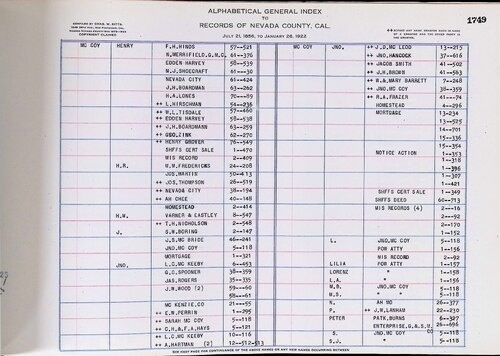 ALPHABETICAL GENERAL INDEX
TO
RECORDS OF NEVADA COUNTY, CAL.
JULY 21, 1856, TO JANUARY 28, 1922
COPYRIGHT CLAIMED
1749
MC COY HENRY F.H.HINDS 57—521
N.MERRIFIELD,G.M.C. 61—370
EDDEN HARVEY 58—539
M.J.SHOECRAFT 61—30
NEVADA CITY 61—424
J.H.BOARDMAN 63—262
H.A.LONES 70—89
++ L.HIRSCHMAN 54—236
++ W.L.TISDALE 57—460
++ EDDEN HARVEY 58—538
++ J.H.BOARDMANN 63—259
++ GEO.ZINK 62—270
++ HENRY GROVER 76—549
SHFFS CERT SALE 1—470
MIS RECORD 2—409
H.R. W.W.FREDERICKS 24—208
JOS.MARTIN 50—413
++ JOS.THOMPSON 26—519
++ NEVADA CITY 38—194
++ AH CHEE 40—148
HOMESTEAD 2—414
H.W. VARNER & EASTLEY 8—547
++ T.H.NICHOLSON 2—548
J. S.W.BORING 2—147
J.S.MC BRIDE 46—241
JNO.MC COY 5—118
MORTGAGE 1—321
JNO. L.C.MC KEEBY 6—653
G.C.SPOONER 38—359
JAS.ROGERS 35—335
J.W.WOOD (2) 59—60
58—61
MC KENZIE,CO 21—55
++ E.W.PERRIN 1—295
++ SARAH MC COY 5—118
++ C.H.& F.A.HAYS 5—121
++ L.C.MC KEEBY 10—116
++ A.HARTMAN (2) 12—512-513
MC COY JNO. ++ J.D.MC LEOD 13—215
++ JNO.HANCOCK 37—616
++ JACOB SMITH 41—502
++ J.H.BROWN 41—563
++ W.& MARY BARRETT 7—248
++ JNO.MC COY 38—359
++ R.A.FRAZER 41—74
HOMESTEAD 4—296
MORTGAGE 13—234
13—525
14—701
15—336
15—354
NOTICE ACTION 1—353
1—318
1—396
1—307
1—421
SHFFS CERT SALE 1—349
SHFFS DEED 60—713
MIS RECORDS (4) 2—16
2—92
2—170
1—152
L. JNO.MC COY 5—118
POW ATTY 1—156
MIS RECORD 2—92
LILIA POW ATTY 1—157
LORENZ " 1—158
L.A. " 1—156
M.B. JNO.MC COY 5—118
M.S. " 5—118
N. AH MO 26—377
P. ++ J.W.LARNAM 22—230
PETER PATK.BURNS 6—327
ENTERPRISE,G.& S.M. CO 26—696
S. JNO.MC COY 5—118
S.J. " 5—118